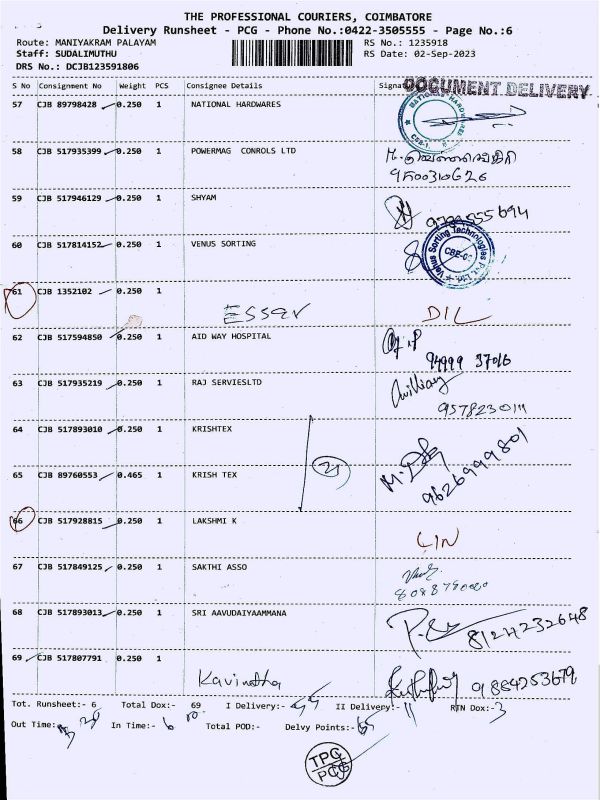 THE PROFESSIONAL COURIERS, COIMBATORE
Delivery Runsheet - PCG - Phone No.:0422-3505555 - Page No.:6
Route: MANIYAKRAM PALAYAM RS No.: 1235918
Staff: SUDALIMUTHU RS Date: 02-Sep-2023
DRS No.: DCJB123591806
DOCUMENT DELIVERY
S No Consignment No Weight PCS Consignee Details
57 CJB 89798428 0.250 1 NATIONAL HARDWARES
58 CJB 517935399 0.250 1 POWERMAG CONROLS LTD
9500310626
59 CJB 517946129 0.250 1 SHYAM
60 CJB 517814152 0.250 1 VENUS SORTING
Venus Sorting Technologies Pvt. Ltd.
61 CJB 1352102 0.250 1 ESSAR DIL
62 CJB 517594850 0.250 1 AID WAY HOSPITAL
94999 37016
63 CJB 517935219 0.250 1 RAJ SERVIESLTD
64 CJB 517893010 0.250 1 KRISHTEX
21
65 CJB 89760553 0.465 1 KRISH TEX
9626999801
66 CJB 517928815 0.250 1 LAKSHMI K
67 CJB 517849125 0.250 1 SAKTHI ASSO
68 CJB 517893013 0.250 1 SRI AAVUDAIYAAMMANA
8124232648
69 CJB 517807791 0.250 1
Kavinatha 9884253679
Tot. Runsheet:- 6 Total Dox:- 69 I Delivery:- II Delivery:- 11 RTN Dox:- 3
Out Time: In Time:- Total POD:- Delvy Points:-
TPC
PCG